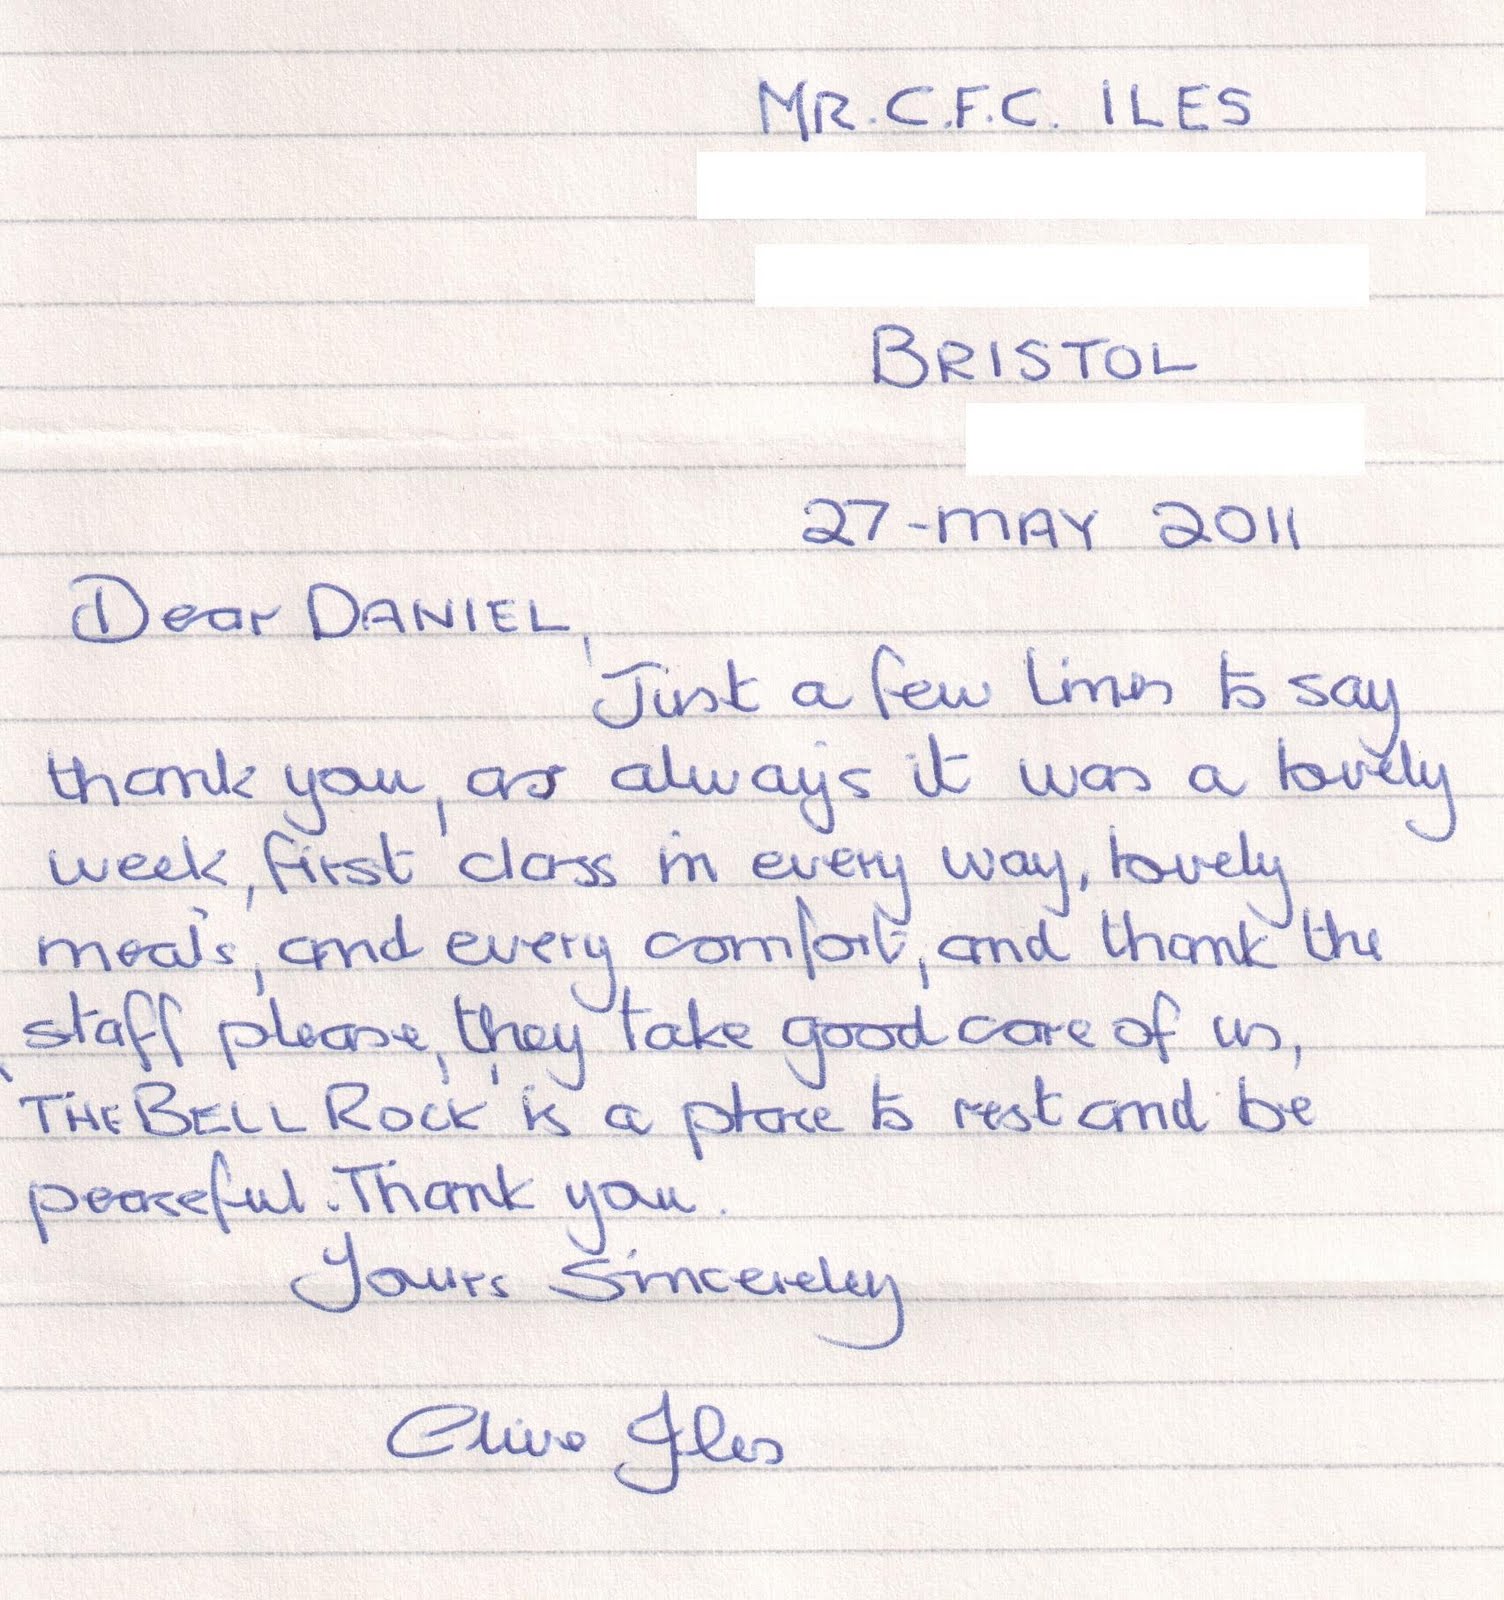 MR. C.F.C. ILES
BRISTOL
27-MAY 2011
Dear DANIEL,
Just a few lines to say
thank you, as always it was a lovely
week, first class in every way, lovely
meals, and every comfort, and thank the
staff please, they take good care of us,
THE BELL ROCK is a place to rest and be
peaceful. Thank you.
Yours Sincereley
Clive Iles